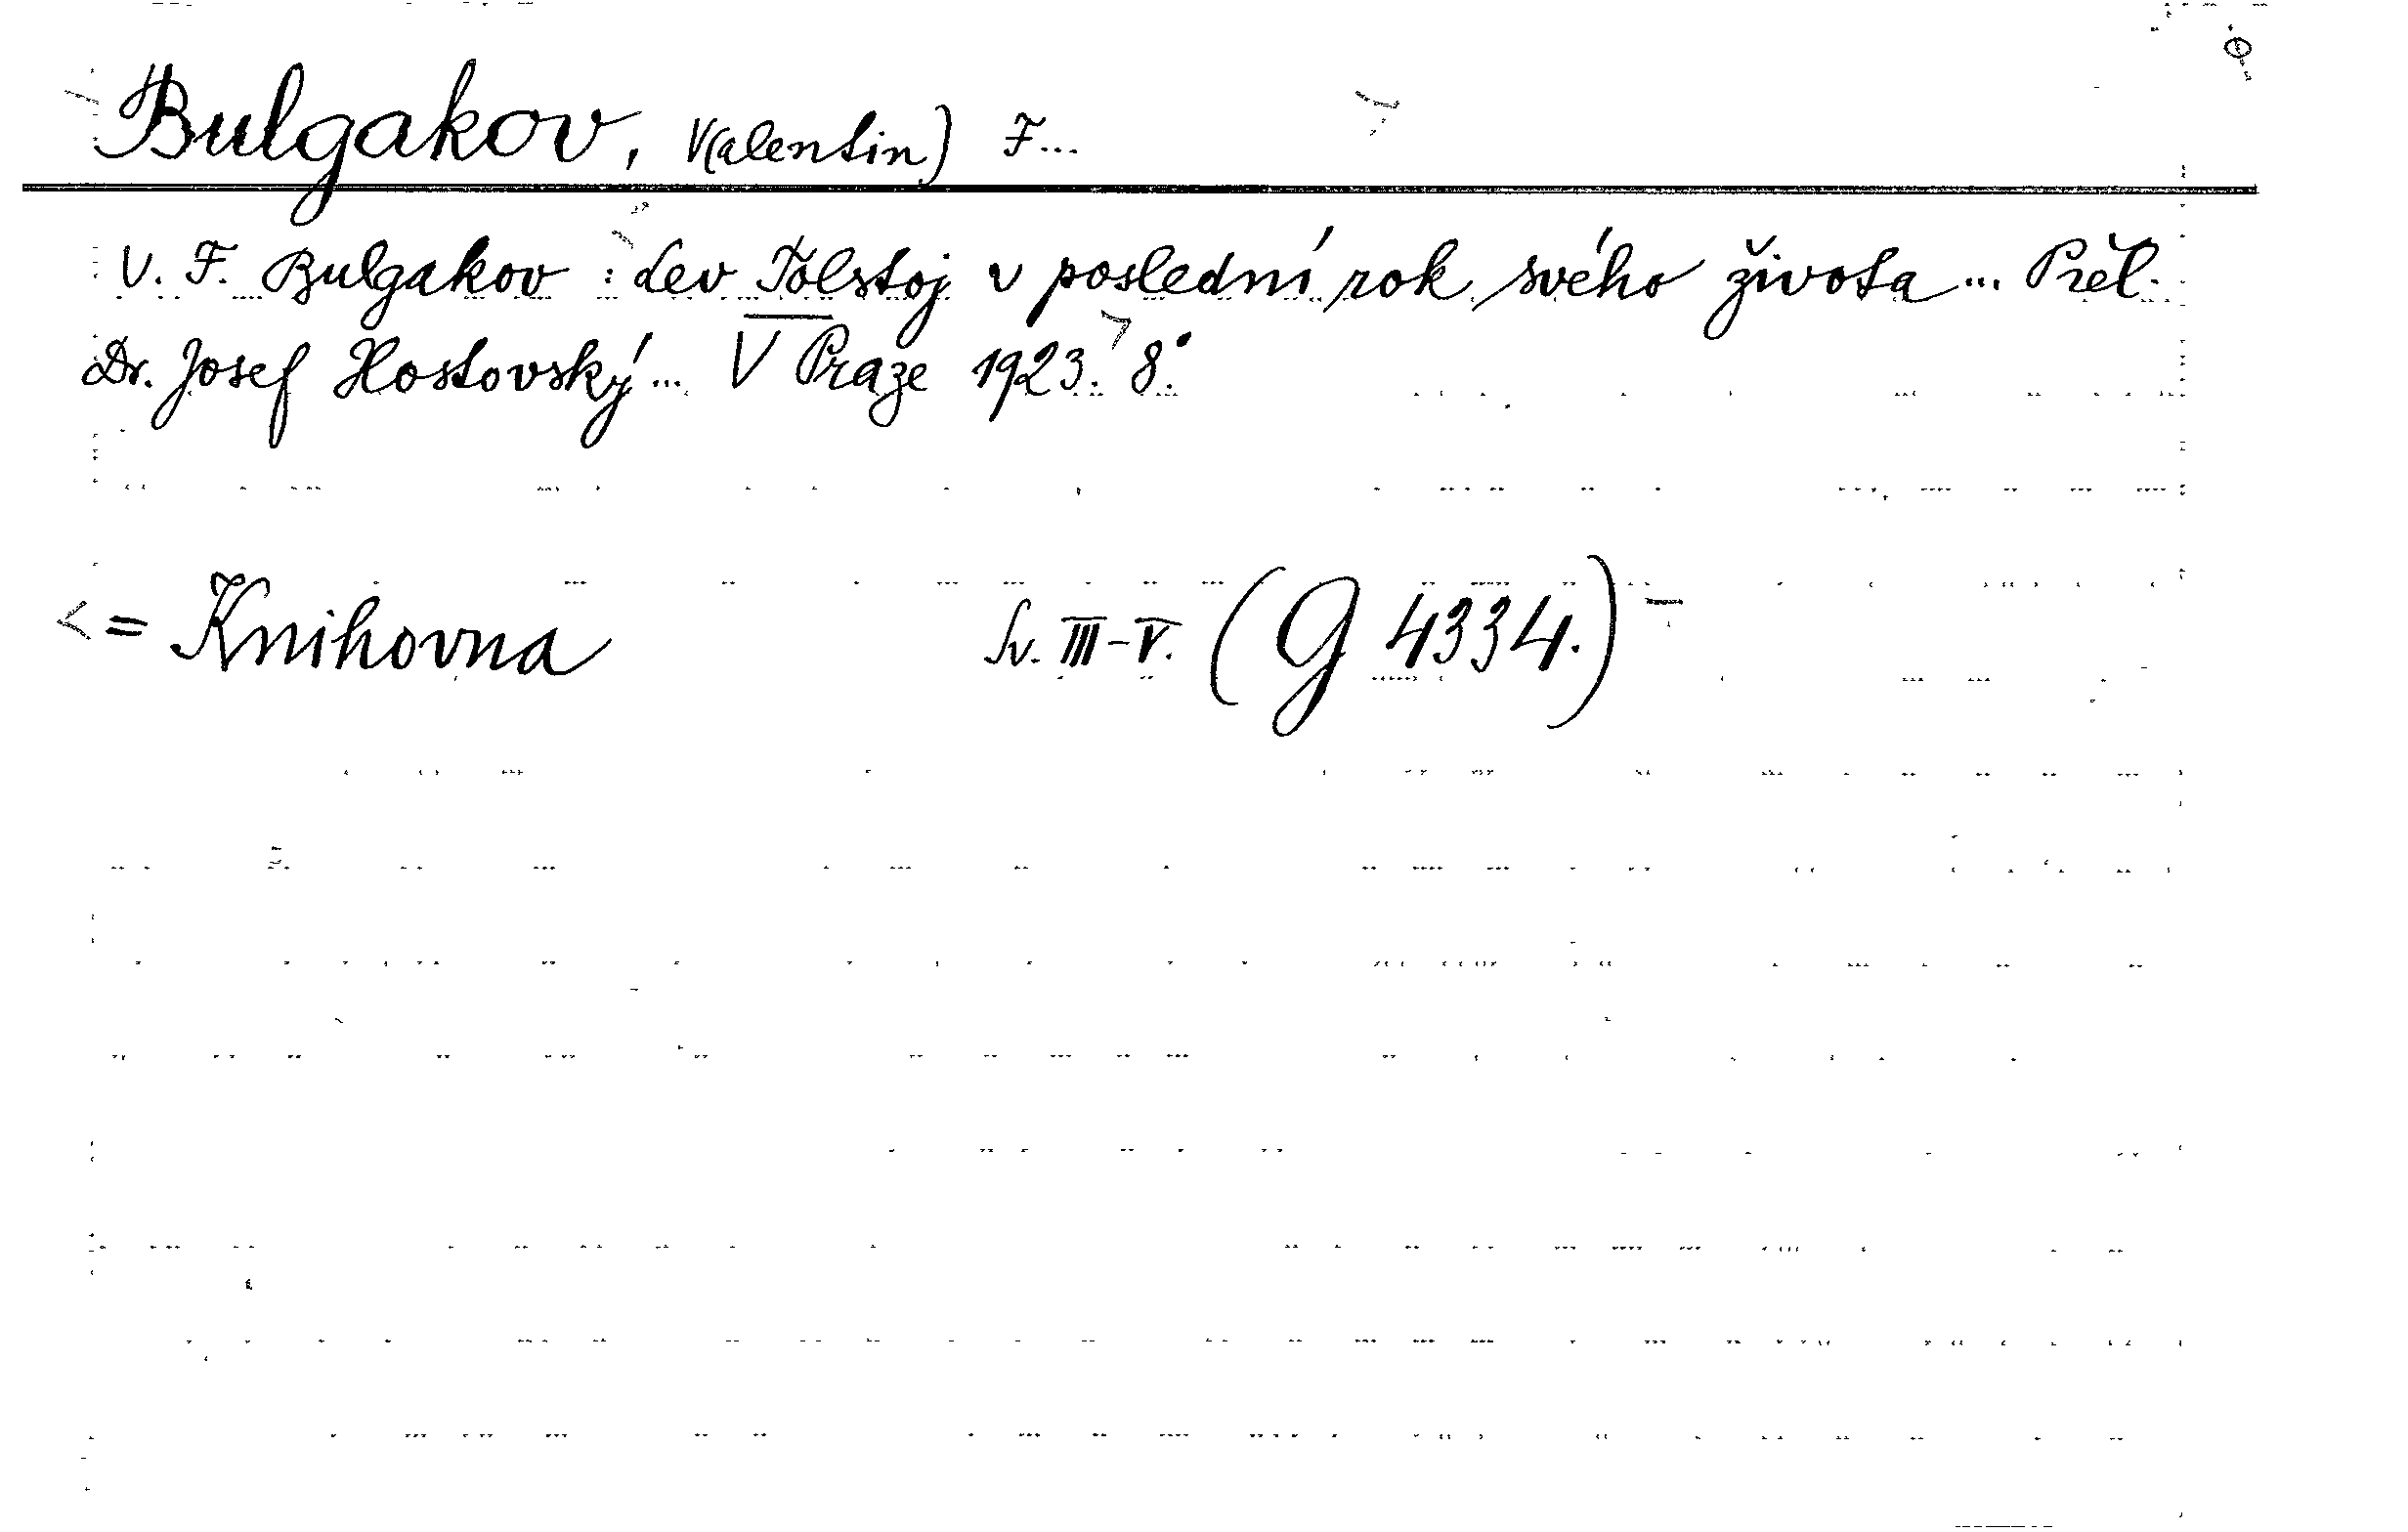 Bulgakov, V(alentin) F...
V. F. Bulgakov : Lev Tolstoj v poslední rok svého života ... Přel.
Dr. Josef Hostovský ... V Praze 1923. 8°.
= Knihovna Sv. III-V. (G 4334.)